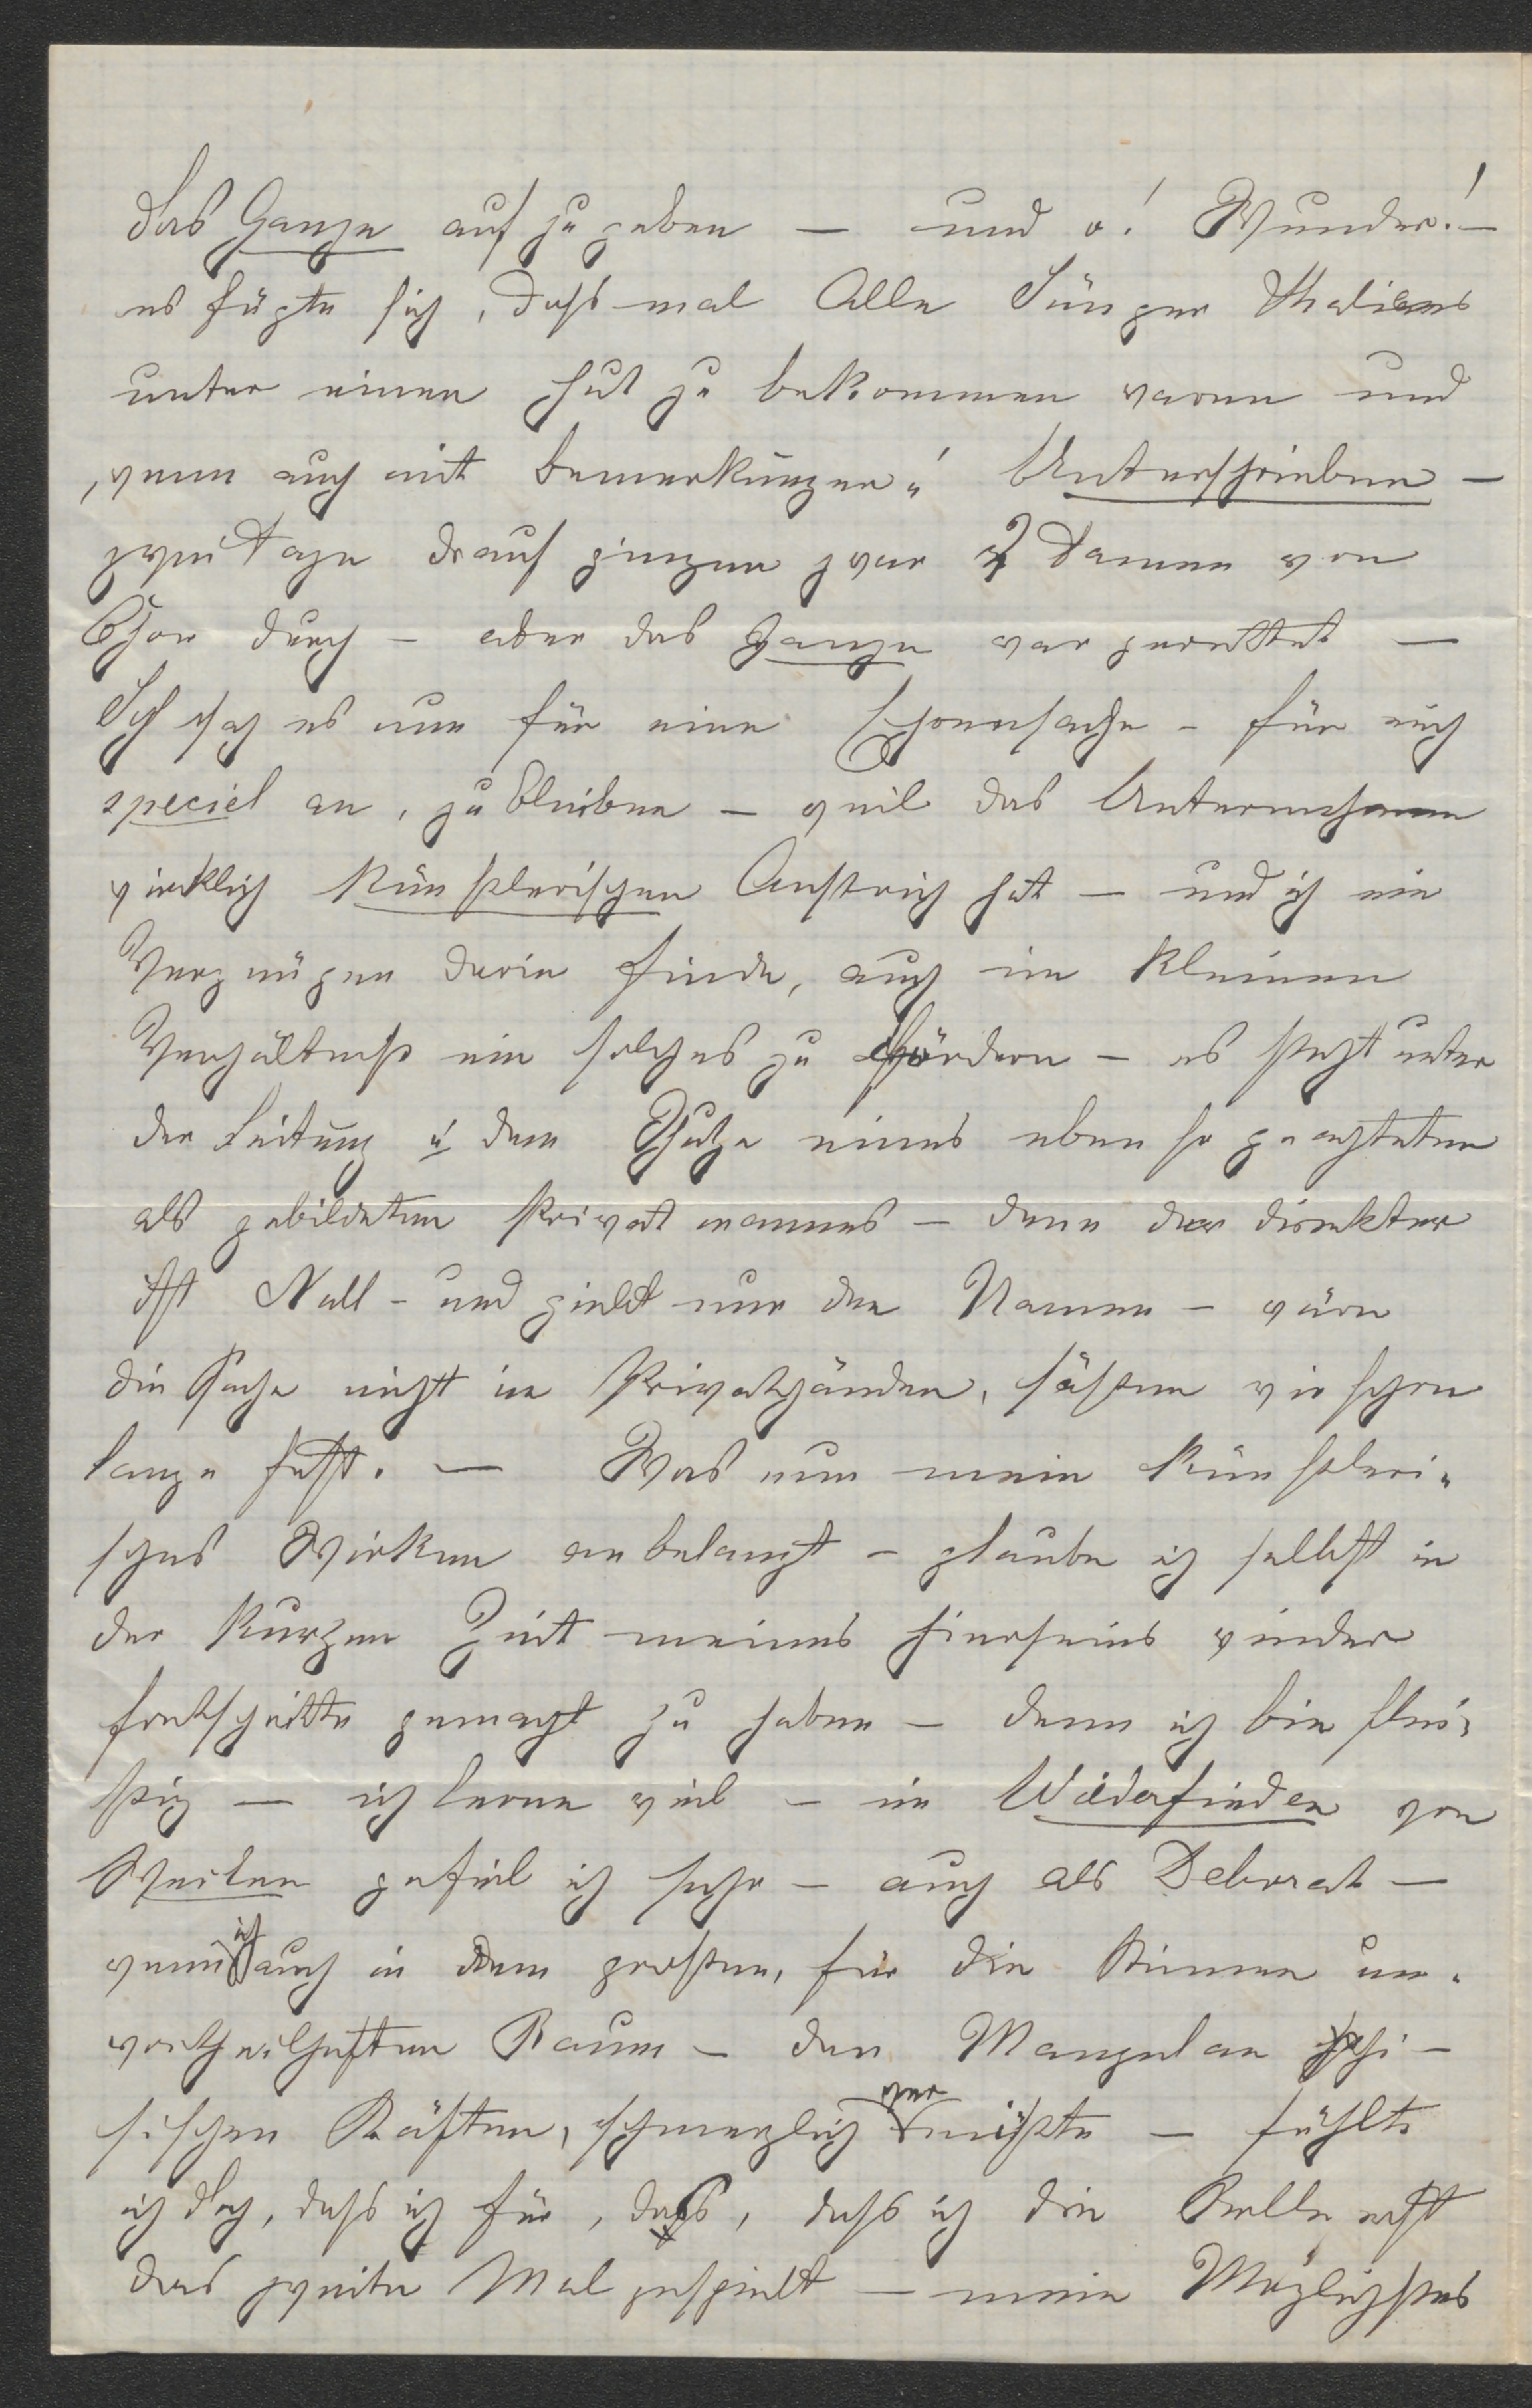 das Ganze auf zu geben — und o! Wunder! —
es fügte sich, dass mal Alle Jünger Thaliens
unter einen Hut zu bekommen waren und
„wenn auch mit Bemerkungen" Unterschrieben —
zwei Tage drauf gingen zwar 2 Damen von
Chor durch — aber das Ganze war gerettet —
Ich sah es nun für eine Ehrensache — für mich
speciel an, zu bleiben — weil das Unternehmen
wirklich künstlerischen Anstrich hat — und ich ein
Vergnügen darin finde, auch im kleinen
Verhältniss ein solches zu fördern — es steht unter
der Leitung u dem Schutze eines eben so geachteten
als gebildeten Privat mannes — denn der Direkter
ist Null — und zielt nur den Namen — wäre
die Sache nicht in Privathänden, sässen wir schon
lange fest. — Was nun mein künstleri-
sches Wirken an belangt — glaube ich selbst in
der kurzen Zeit meines Hierseins wieder
Fortschritte gemacht zu haben — denn ich bin flei-
ssig — ich lerne viel — im Wiederfinden von
Weilen gefiel ich sehr — auch als Deborah —
wenn ich auch in dem grossen, für die Stimme un-
vortheilhaften Raum — den Mangel an phi-
sischen Kräften, schmerzlich vermisste — fühlte
ich doch, dass ich für, das, dass ich die Rolle erst
das zweite Mal gespielt — mein Möglichstes